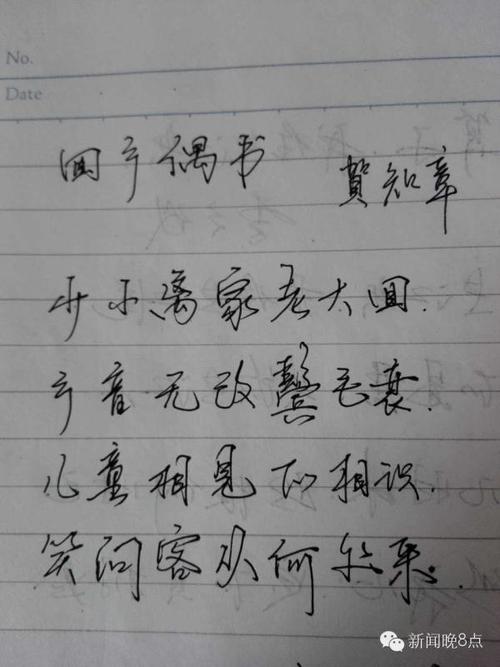 No.
Date
回乡偶书 賀知章
少小离家老大回.
乡音无改鬓毛衰.
儿童相见不相识.
笑问客从何处来.
新闻晚8点